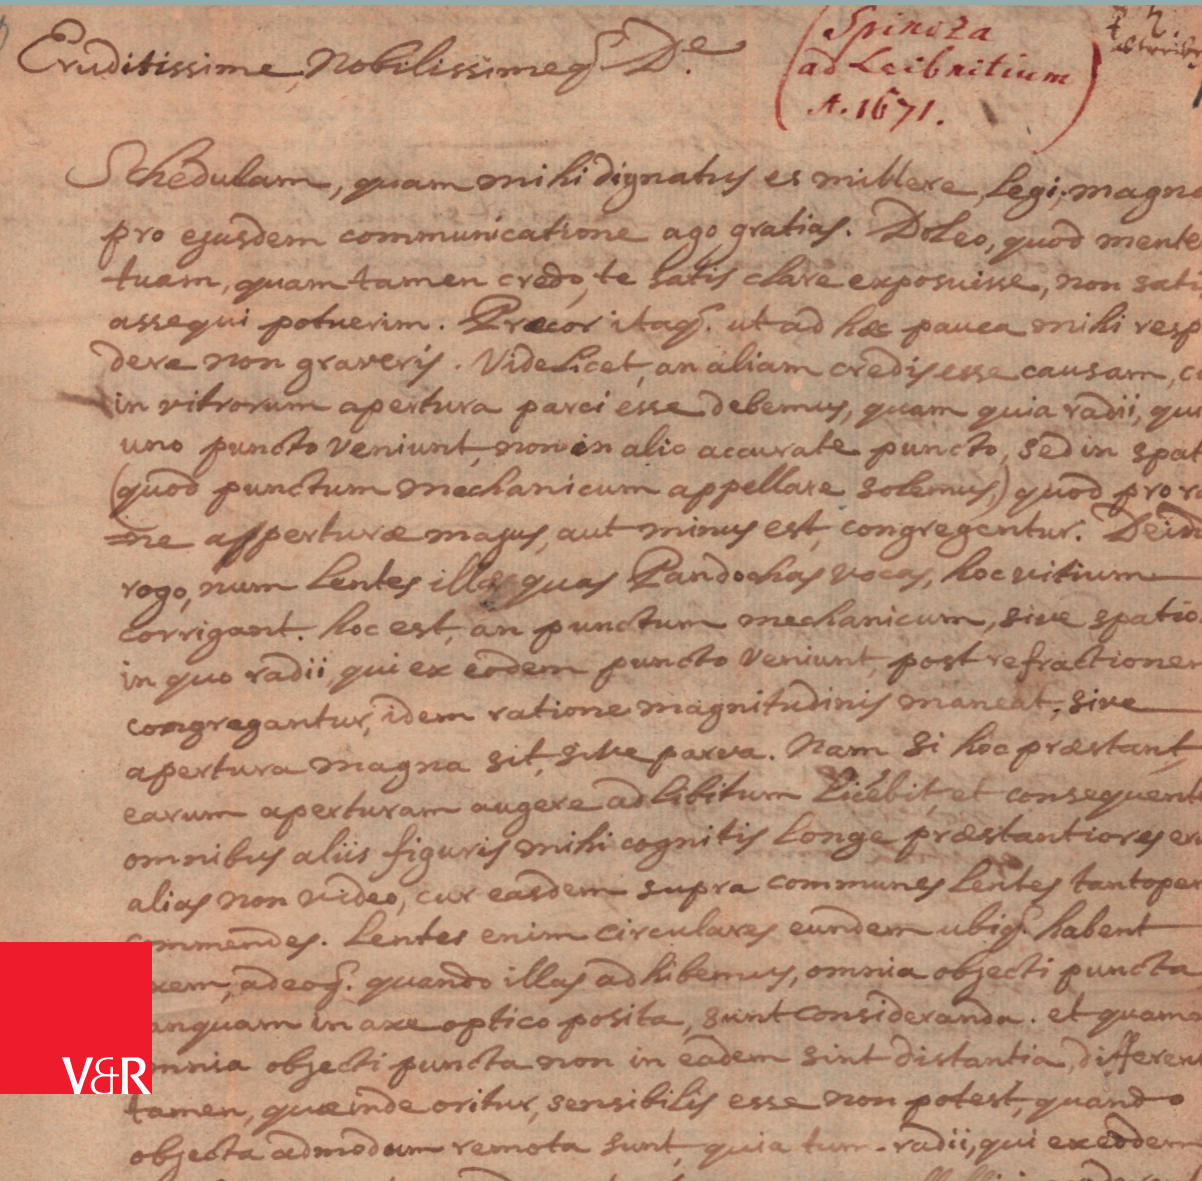 Eruditissime, Nobilissimeq̃ De
(Spinoza
ad Leibnitium
A. 1671.)
Schedulam, quam mihi dignatus es mittere, legi, magn
pro ejusdem communicatione ago gratias. Doleo, quod mente
tuam, quam tamen credo, te satis clare exposuisse, non sati
assequi potuerim. Præcor itaq̃. ut ad hæc pauca mihi resp
dere non graveris. Videlicet, an aliam credis esse causam, c
in vitrorum apertura parci esse debemus, quam quia radii, qui
uno puncto veniunt, non in alio accurate puncto, sed in spat
(quod punctum mechanicum appellare solemus,) quod pro r
=ne apperturæ majus, aut minus est, congregentur. Dein
rogo, num lentes illæ, quas Pandochas vocas, hoc vitium
corrigant. hoc est, an punctum mechanicum, sive spatiu
in quo radii, qui ex eodem puncto veniunt, post refractionem
congregantur, idem ratione magnitudinis maneat, sive
apertura magna sit, sive parva. Nam si hoc præstant,
earum aperturam augere ad libitum licebit, et consequent
omnibus aliis figuris mihi cognitis longe præstantiores er
alias non video, cur easdem supra communes lentes tantoper
commendes. Lentes enim circulares eundem ubiq̃. habent
axem, adeoq̃. quando illas adhibemus, omnia objecti puncta
tanquam in axe optico posita, sunt consideranda. et quam
omnia objecti puncta non in eadem sint distantia, differen
tamen, quæ inde oritur, sensibilis esse non potest, quando
objecta admodum remota sunt, quia tum radii, qui ex eodem
V&R